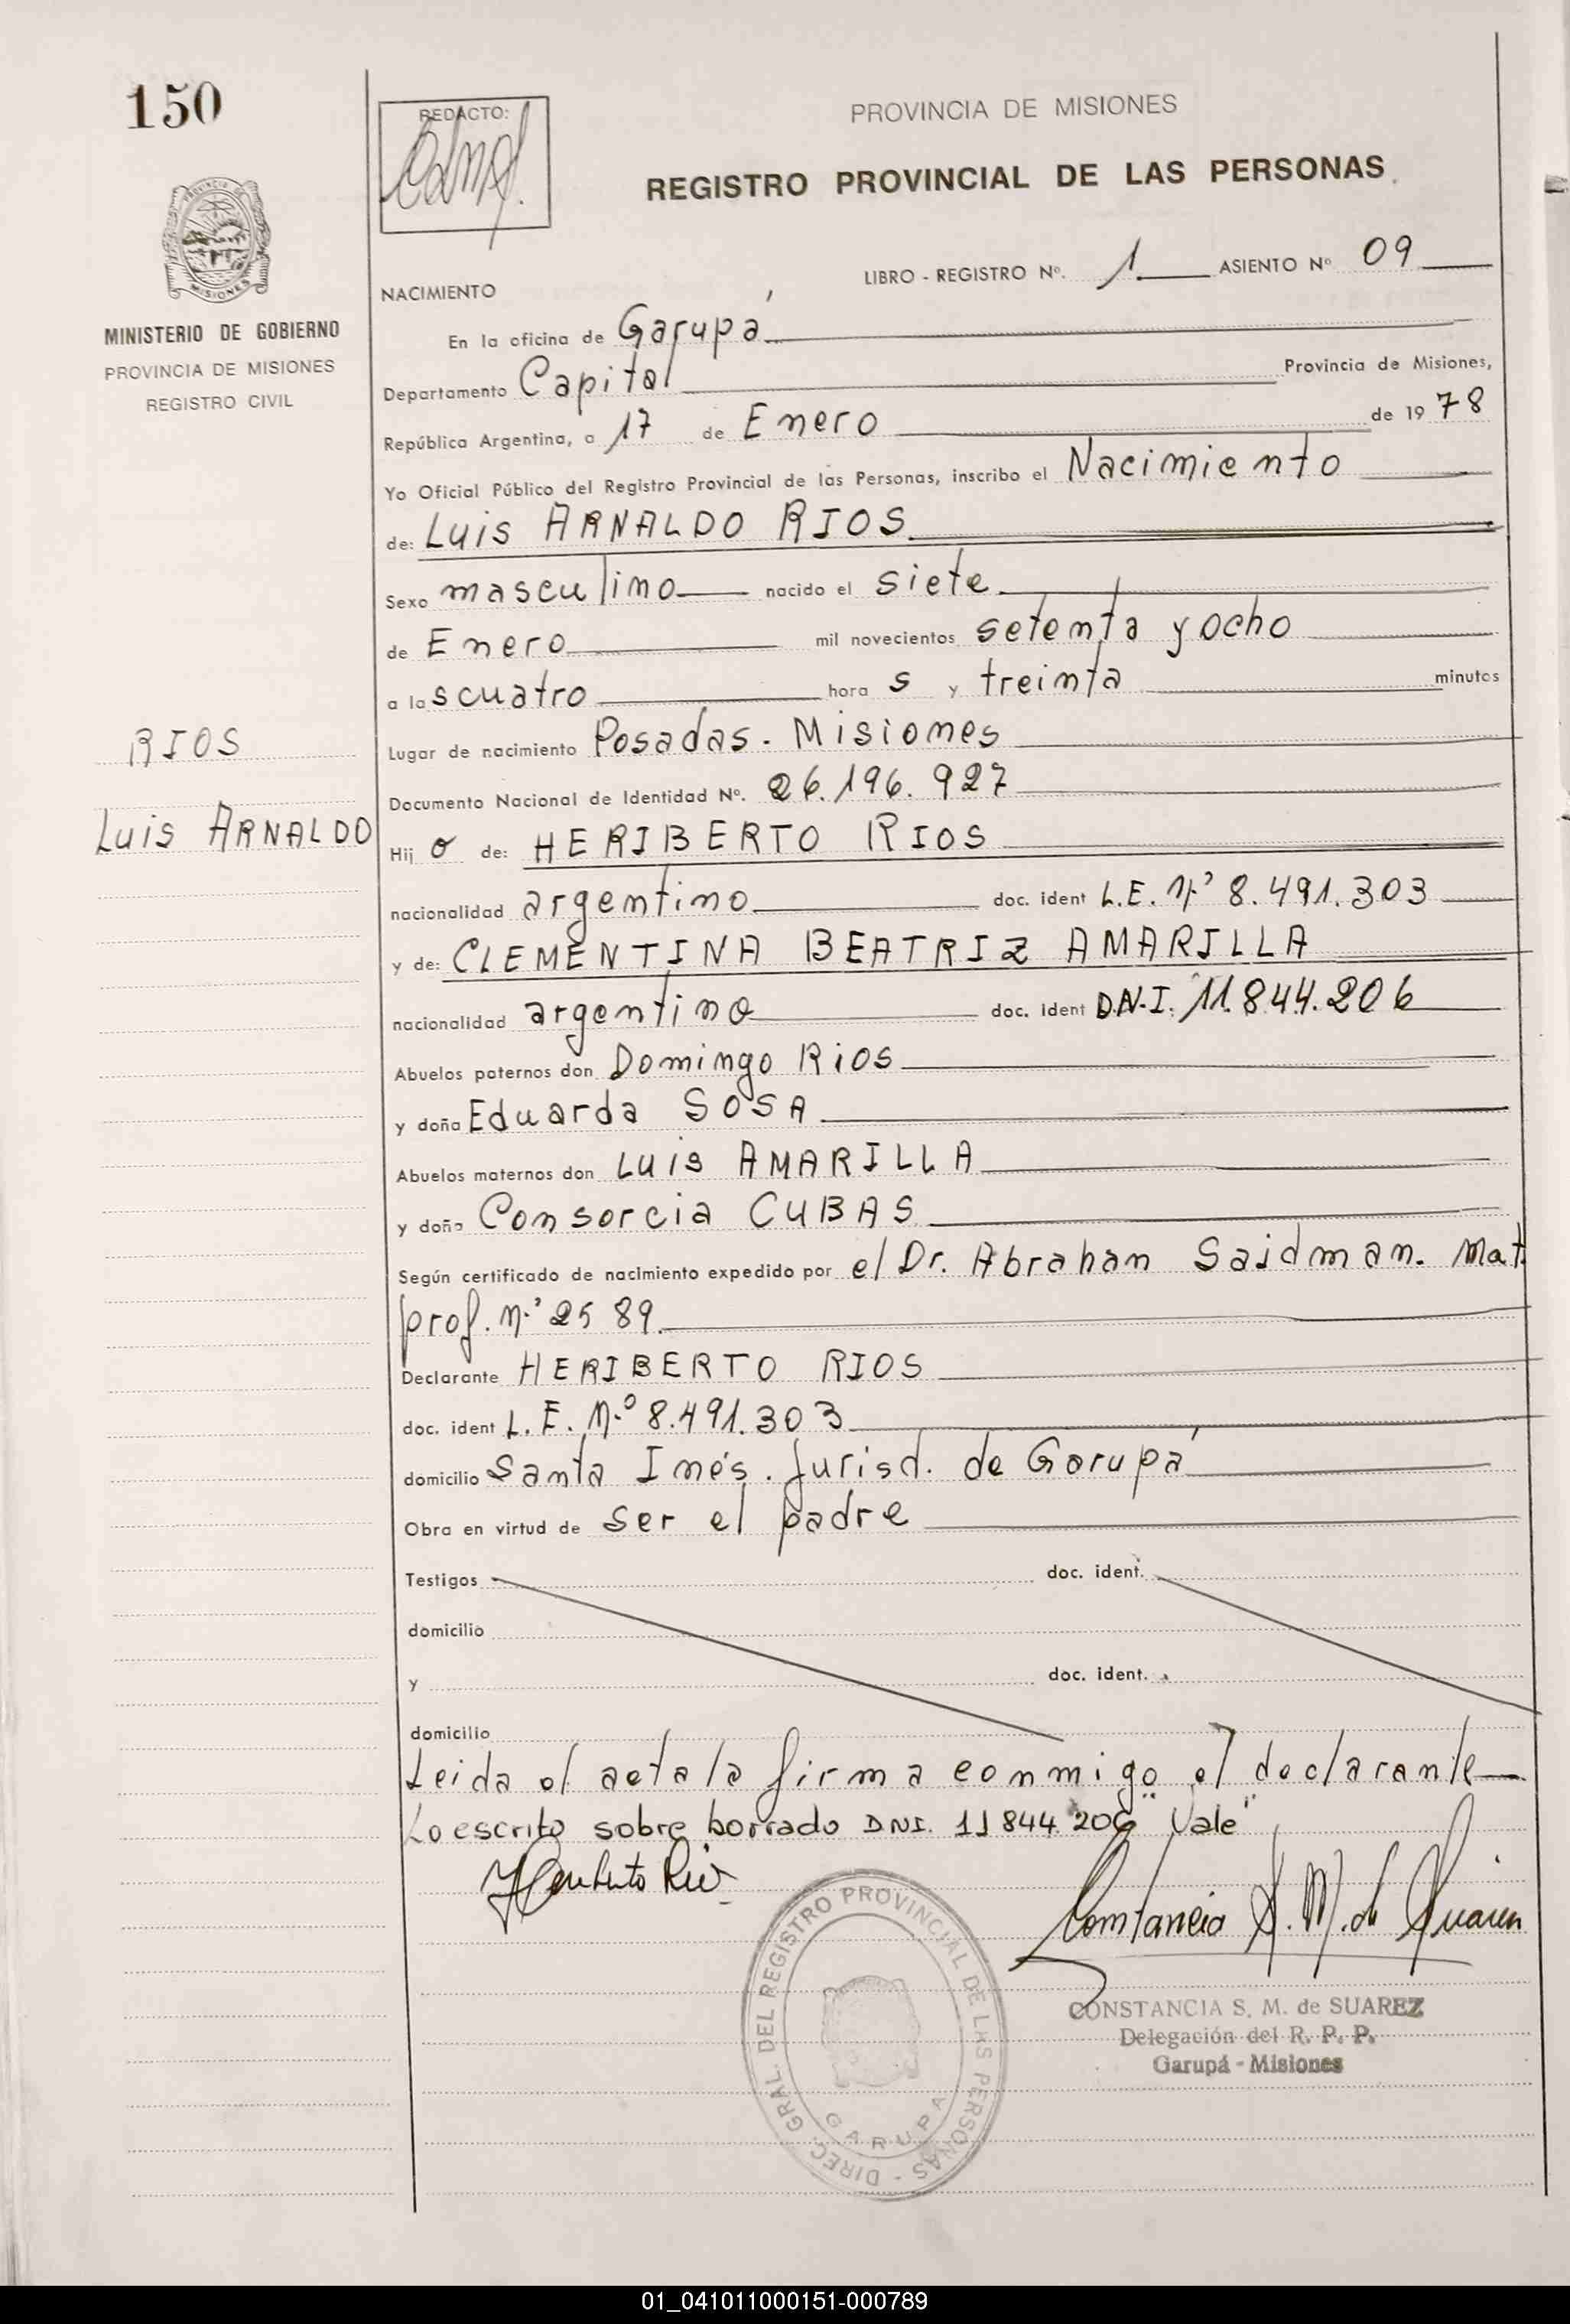 150
REDACTO:
PROVINCIA DE MISIONES
REGISTRO PROVINCIAL DE LAS PERSONAS
PROVINCIA DE MISIONES
MINISTERIO DE GOBIERNO
PROVINCIA DE MISIONES
REGISTRO CIVIL
LIBRO - REGISTRO Nº. 1 ASIENTO Nº 09
NACIMIENTO
En la oficina de Garupá
Departamento Capital Provincia de Misiones,
República Argentina, a 17 de Enero de 19 78
Yo Oficial Público del Registro Provincial de las Personas, inscribo el Nacimiento
de: Luis ARNALDO RIOS
Sexo masculino nacido el siete
de Enero mil novecientos setenta y ocho
a las cuatro hora s y treinta minutos
RIOS
Lugar de nacimiento Posadas. Misiones
Documento Nacional de Identidad Nº. 26.196.927
Luis ARNALDO
Hij o de: HERIBERTO RIOS
nacionalidad argentino doc. ident L.E. Nº 8.491.303
y de: CLEMENTINA BEATRIZ AMARILLA
nacionalidad argentina doc. ident D.N.I. 11.844.206
Abuelos paternos don Domingo Rios
y doña Eduarda SOSA
Abuelos maternos don Luis AMARILLA
y doña Consorcia CUBAS
Según certificado de nacimiento expedido por el Dr. Abrahan Saidman. Mat.
prof. n.º 2589.
Declarante HERIBERTO RIOS
doc. ident L.E. N.º 8.491.303
domicilio Santa Inés. Jurisd. de Garupá
Obra en virtud de ser el padre
Testigos doc. ident.
domicilio
y doc. ident.
domicilio
Leida el acta la firma conmigo el declarante
Lo escrito sobre borrado DNI. 11844.206 "Vale"
Heriberto Rios
Constancia S. M. de Suarez
DIREC. GRAL. DEL REGISTRO PROVINCIAL DE LAS PERSONAS -
GARUPA
CONSTANCIA S. M. de SUAREZ
Delegación del R. P. P.
Garupá - Misiones
01_041011000151-000789